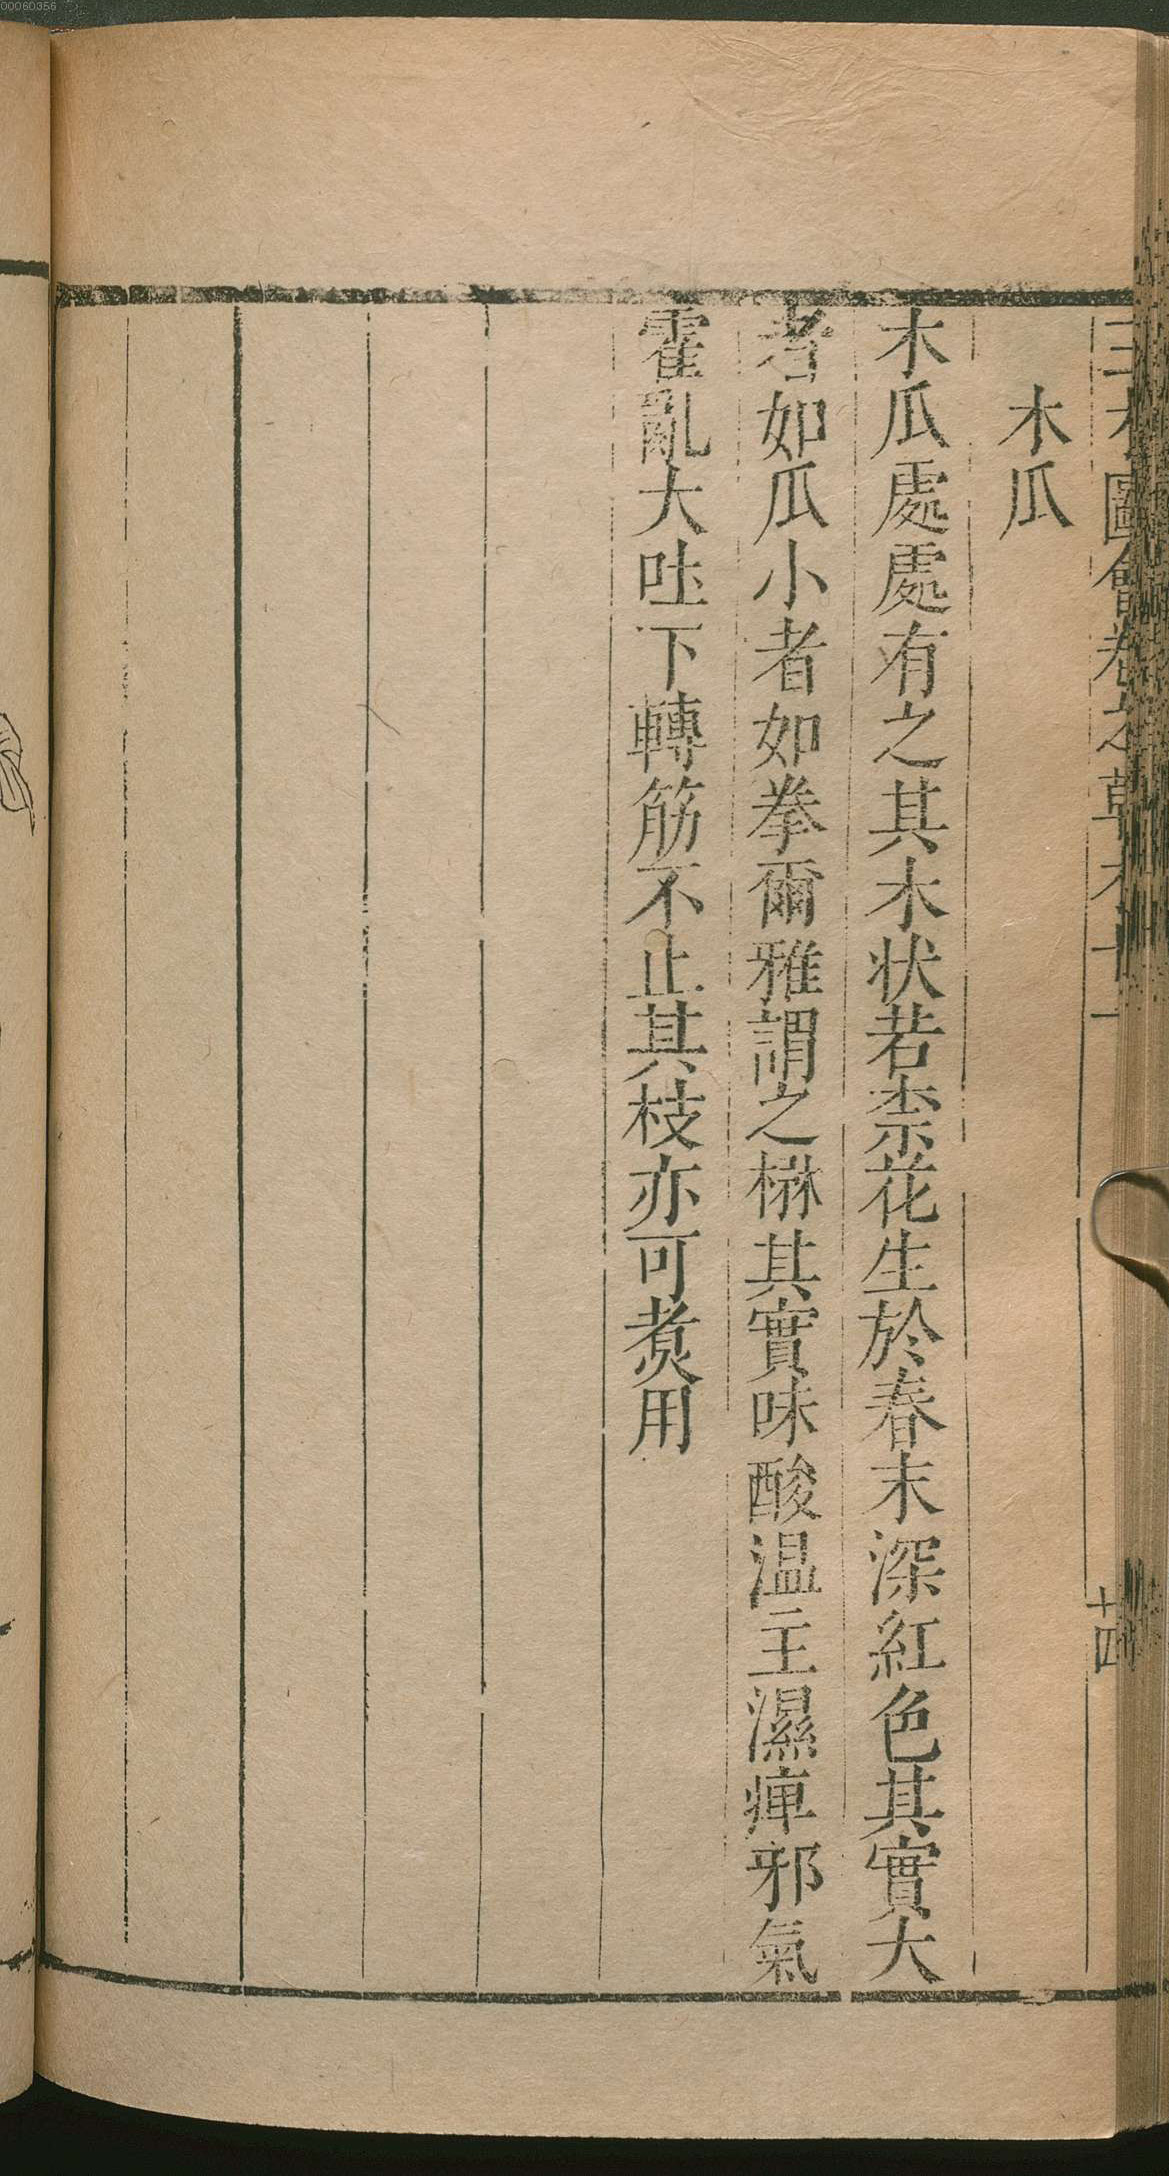 00060356
三才圖會卷之草木十一
十四
木瓜
木瓜處處有之其木状若柰花生於春末深紅色其實大
者如瓜小者如拳爾雅謂之楙其實味酸温主濕痺邪氣
霍亂大吐下轉筋不止其枝亦可煑用